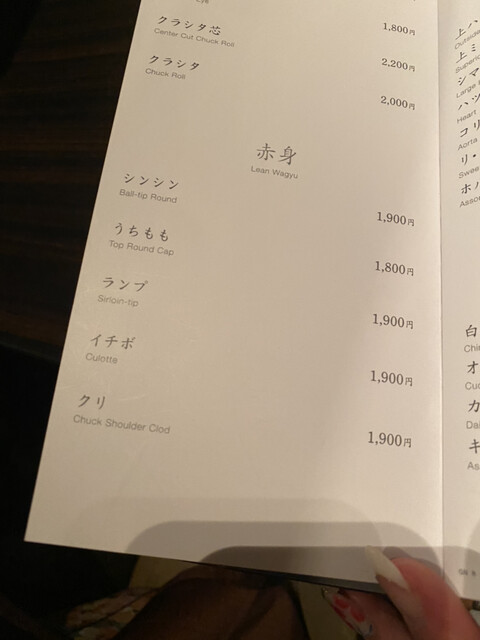 Eye
1,800円
クラシタ芯
Center Cut Chuck Roll
2,200円
クラシタ
Chuck Roll
2,000円
赤身
Lean Wagyu
シンシン
Ball-tip Round
1,900円
うちもも
Top Round Cap
1,800円
ランプ
Sirloin-tip
1,900円
イチボ
Culotte
1,900円
クリ
Chuck Shoulder Clod
1,900円
上ハ
Outside
上ミ
Superio
シマ
Large
ハツ
Heart
コリ
Aorta
リ・
Swee
ホル
Asso
白
Chin
オ
Cuc
カ
Dai
キ
As